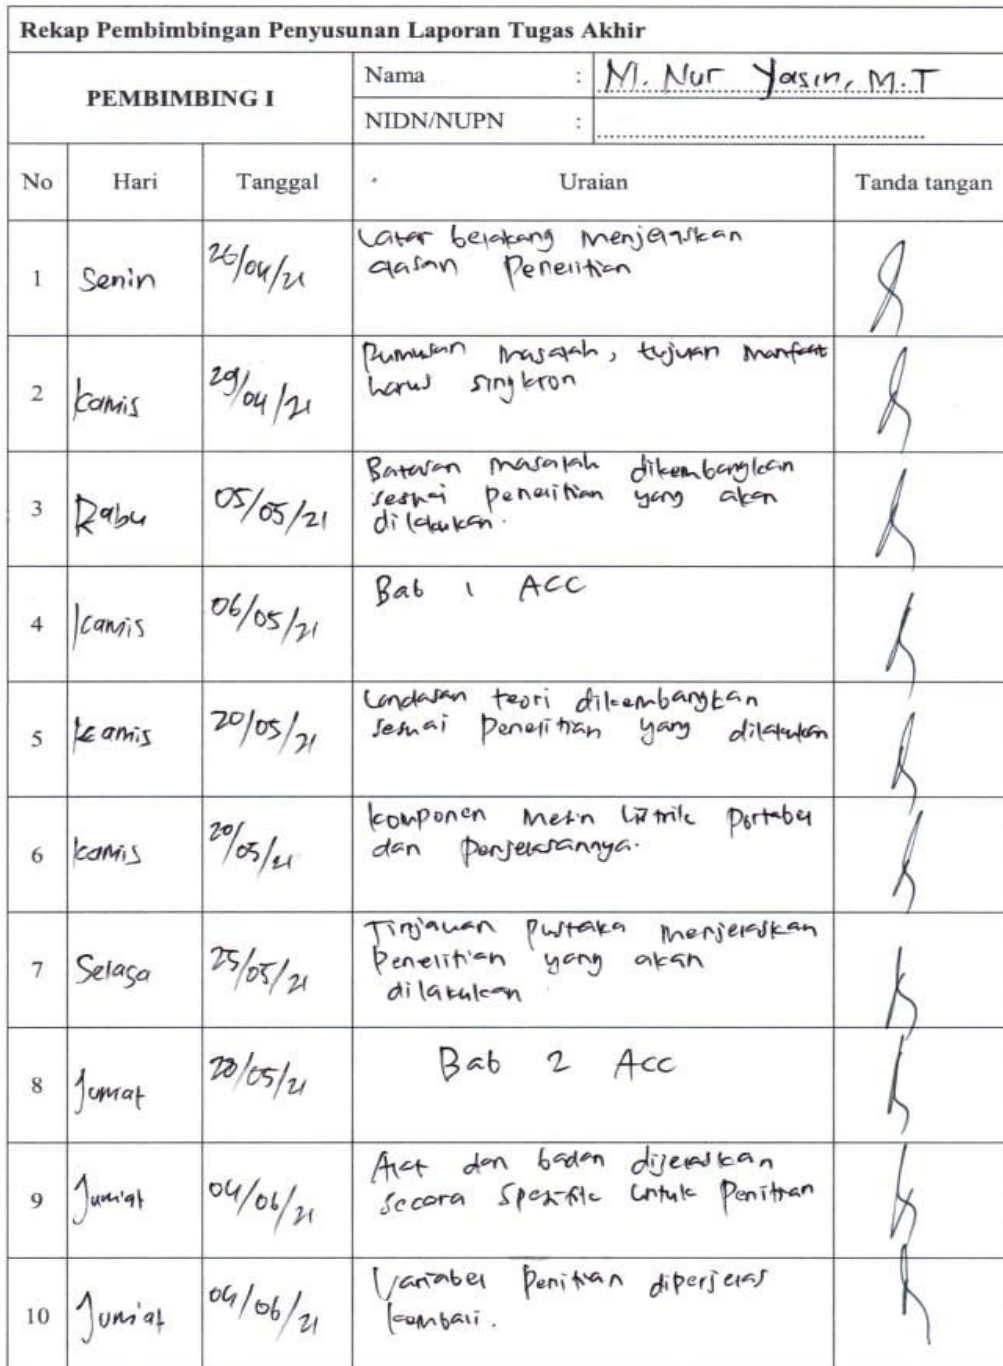 Rekap Pembimbingan Penyusunan Laporan Tugas Akhir
PEMBIMBING I
Nama : M. Nur Yasin, M.T
NIDN/NUPN :
No Hari Tanggal Uraian Tanda tangan
1 Senin 26/04/21 Latar belakang menjelaskan
alasan Penelitian
2 Kamis 29/04/21 Rumusan masalah, tujuan manfaat
harus singkron
3 Rabu 05/05/21 Batasan masalah dikembangkan
sesuai penelitian yang akan
dilakukan.
4 Kamis 06/05/21 Bab 1 ACC
5 Kamis 20/05/21 Landasan teori dikembangkan
sesuai Penelitian yang dilakukan
6 Kamis 20/05/21 Komponen Mesin Listrik Portabel
dan Penjelasannya.
7 Selasa 25/05/21 Tinjauan Pustaka menjelaskan
Penelitian yang akan
dilakukan
8 Jumat 28/05/21 Bab 2 Acc
9 Jum'at 04/06/21 Alat dan badan dijelaskan
secara Spesifik untuk Penitian
10 Jum'at 04/06/21 Variabel Penitian diperjelas
kembali.